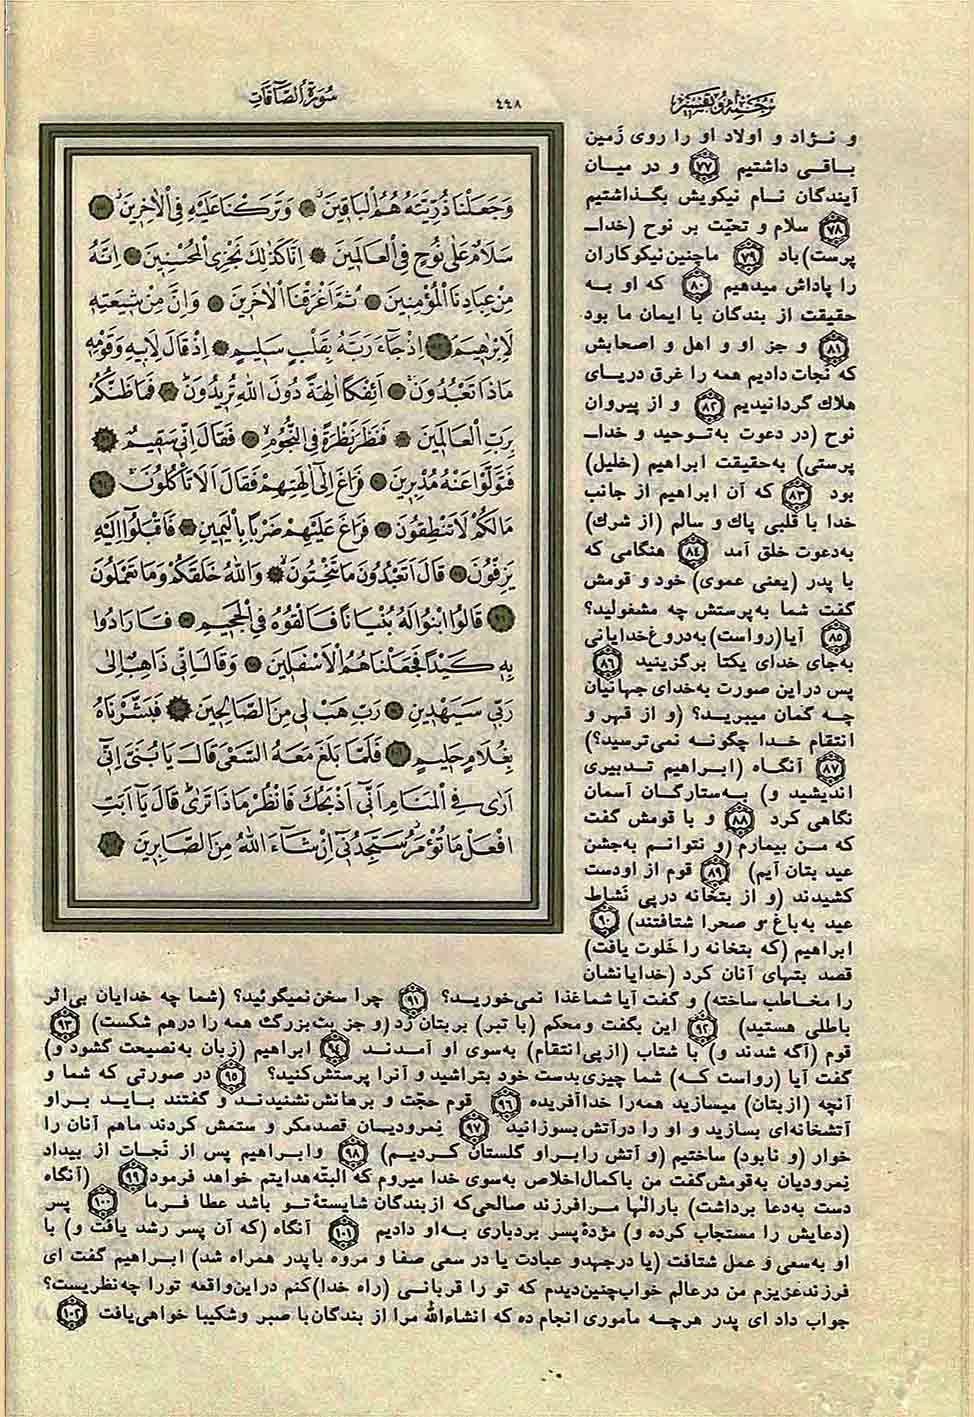 ترجمه و تفسیر
٤٤٨
سورة الصّآفّات
وَجَعَلْنَا ذُرِّيَّتَهُ هُمُ الْبَاقِينَ وَتَرَكْنَا عَلَيْهِ فِي الْاٰخِرِينَ
سَلَامٌ عَلٰى نُوحٍ فِي الْعَالَمِينَ اِنَّا كَذٰلِكَ نَجْزِي الْمُحْسِنِينَ اِنَّهُ
مِنْ عِبَادِنَا الْمُؤْمِنِينَ ثُمَّ اَغْرَقْنَا الْاٰخَرِينَ وَاِنَّ مِنْ شِيعَتِهِ
لَاِبْرٰهِيمَ اِذْ جَآءَ رَبَّهُ بِقَلْبٍ سَلِيمٍ اِذْ قَالَ لِاَبِيهِ وَقَوْمِهِ
مَاذَا تَعْبُدُونَ اَئِفْكًا اٰلِهَةً دُونَ اللّٰهِ تُرِيدُونَ فَمَا ظَنُّكُمْ
بِرَبِّ الْعَالَمِينَ فَنَظَرَ نَظْرَةً فِي النُّجُومِ فَقَالَ اِنِّي سَقِيمٌ
فَتَوَلَّوْا عَنْهُ مُدْبِرِينَ فَرَاغَ اِلٰٓى اٰلِهَتِهِمْ فَقَالَ اَلَا تَأْكُلُونَ ٩١
مَا لَكُمْ لَا تَنْطِقُونَ فَرَاغَ عَلَيْهِمْ ضَرْبًا بِالْيَمِينِ فَاَقْبَلُوٓا اِلَيْهِ
يَزِفُّونَ قَالَ اَتَعْبُدُونَ مَا تَنْحِتُونَ وَاللّٰهُ خَلَقَكُمْ وَمَا تَعْمَلُونَ
قَالُوا ابْنُوا لَهُ بُنْيَانًا فَاَلْقُوهُ فِي الْجَحِيمِ فَاَرَادُوا
بِهِ كَيْدًا فَجَعَلْنَاهُمُ الْاَسْفَلِينَ وَقَالَ اِنِّي ذَاهِبٌ اِلٰى
رَبِّي سَيَهْدِينِ رَبِّ هَبْ لِي مِنَ الصَّالِحِينَ فَبَشَّرْنَاهُ
بِغُلَامٍ حَلِيمٍ فَلَمَّا بَلَغَ مَعَهُ السَّعْيَ قَالَ يَا بُنَيَّ اِنِّيٓ
اَرٰى فِي الْمَنَامِ اَنِّيٓ اَذْبَحُكَ فَانْظُرْ مَاذَا تَرٰى قَالَ يَآ اَبَتِ
افْعَلْ مَا تُؤْمَرُ سَتَجِدُنِيٓ اِنْ شَآءَ اللّٰهُ مِنَ الصَّابِرِينَ
و نـژاد و اولاد او را روی زمین
بـاقـی داشتیم ٧٧ و در میـان
آیندگان نـام نیکویش بگـذاشتیم
٧٨ سلام و تحیّت بر نوح (خداـ
پرست) باد ٧٩ ماچنین نیکوکاران
را پاداش میدهیم ٨٠ که او بـه
حقیقت از بندگان با ایمان ما بود
٨١ و جز او و اهل و اصحابش
که نجات دادیم همه را غرق دریـای
هلاك گردانیدیم ٨٢ و از پیروان
نوح (در دعوت به‌توحید و خداـ
پرستی) به‌حقیقت ابراهیم (خلیل)
بود ٨٣ که آن ابراهیم از جانب
خدا با قلبی پاك و سالم (از شرك)
به‌دعوت خلق آمد ٨٤ هنگامی که
با پدر (یعنی عموی) خود و قومش
گفت شما به‌پرستش چه مشغولید؟
٨٥ آیا (رواست) به‌دروغ خدایانی
به‌جای خدای یکتا برگزینید ٨٦
پس دراین صورت به‌خدای جهانیان
چـه گمان میبریـد؟ (و از قهر و
انتقام خـدا چگونـه نمی‌ترسید؟)
٨٧ آنگاه (ابـراهیم تـدبیری
اندیشید و) بـه‌ستارگان آسمان
نگاهی کرد ٨٨ و با قومش گفت
که من بیمارم (و نتوانـم به‌جشن
عید بتان آیم) ٨٩ قوم از اودست
کشیدند (و از بتخانه درپی نشاط
عید به‌باغ و صحرا شتافتند) ٩٠
ابراهیم (که بتخانه را خلوت یافت)
قصد بتهای آنان کرد (خدایانشان
را مخـاطب ساخته) و گفت آیا شماغذا نمی‌خوریـد؟ ٩١ چرا سخن نمیگوئید؟ (شما چه خدایان بی‌اثر
باطلی هستید) ٩٢ این بگفت ومحکم (با تبر) بربتان زد (و جز بت‌بزرگ همه را درهم شکست) ٩٣
قوم (آگه شدند و) با شتاب (ازپی‌انتقام) به‌سوی او آمـدنـد ٩٤ ابراهیم (زبان به‌نصیحت گشود و)
گفت آیا (رواست کـه) شما چیزی‌بدست خود بتراشید و آنرا پرستش‌کنید؟ ٩٥ در صورتی که شما و
آنچه (ازبتان) میسازید همه‌را خداآفریده ٩٦ قوم حجّت و برهانش نشنیدنـد و گفتند بـایـد بـراو
آتشخانه‌ای بسازید و او را درآتش بسوزانید ٩٧ نمرودیـان قصدمکر و ستمش کردند ماهم آنان را
خوار (و نابود) ساختیم (و آتش رابراو گلستان کـردیـم) ٩٨ وابراهیم پس از نجـات از بیداد
نمرودیان به‌قومش‌گفت من باکمال‌اخلاص به‌سوی خدا میروم که البتّه‌هدایتم خواهد فرمود ٩٩ (آنگاه
دست به‌دعا برداشت) بارالٰها مرافرزند صالحی‌که ازبندگان شایستهٔ تـو باشد عطا فـرما ١٠٠ پس
(دعایش را مستجاب کرده و) مژدهٔ پسر بردباری به‌او دادیم ١٠١ آنگاه (که آن پسر رشد یافت و) با
او به‌سعی و عمل شتافت (یا درجهدو عبادت یا در سعی صفا و مروه باپدر همراه شد) ابـراهیم گفت ای
فرزندعزیزم من درعالم خواب‌چنین‌دیدم که تو را قربانـی (راه خدا) کنم دراین‌واقعه تورا چه‌نظریست؟
جواب داد ای پدر هرچـه مأموری انجام ده که انشاءالله مرا از بندگان‌با صبر وشکیبا خواهی‌یافت ١٠٢